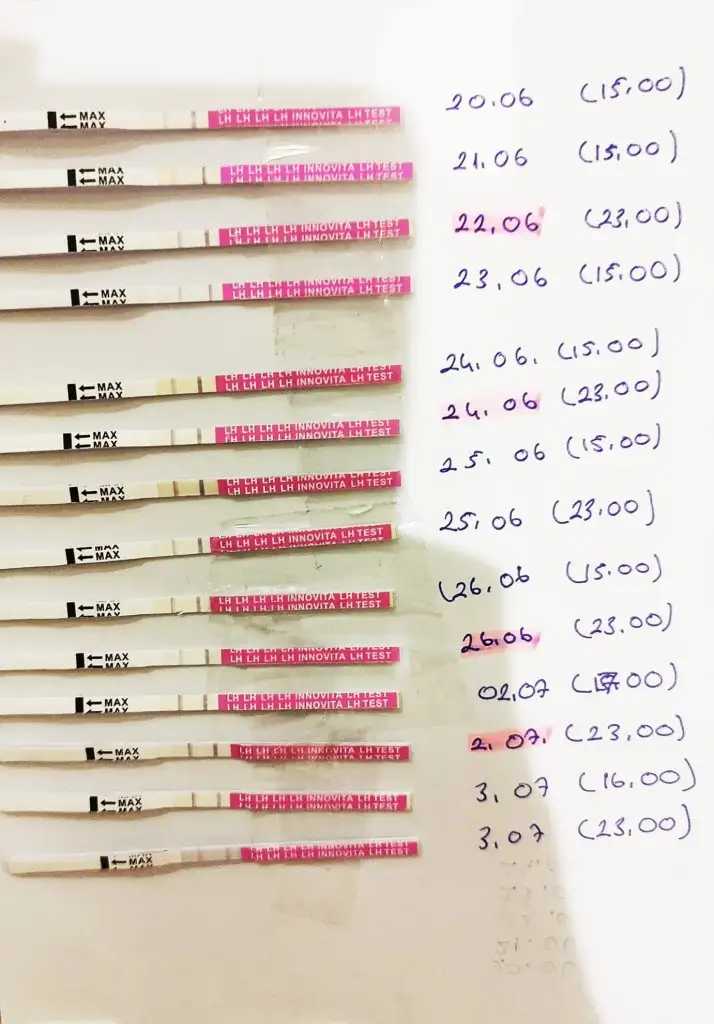 MAX LH LH LH LH INNOVITA LH TEST 20.06 (15.00)
MAX LH LH LH LH INNOVITA LH TEST 21.06 (15,00)
MAX LH LH LH LH INNOVITA LH TEST 22.06 (23,00)
MAX LH LH LH LH INNOVITA LH TEST 23.06 (15.00)
MAX LH LH LH LH INNOVITA LH TEST 24.06. (15.00)
MAX LH LH LH LH INNOVITA LH TEST 24.06 (23.00)
MAX LH LH LH LH INNOVITA LH TEST 25.06 (15.00)
MAX LH LH LH LH INNOVITA LH TEST 25.06 (23.00)
MAX LH LH LH LH INNOVITA LH TEST 26.06 (15.00)
MAX LH LH LH LH INNOVITA LH TEST 26.06 (23.00)
MAX LH LH LH LH INNOVITA LH TEST 02.07
MAX LH LH LH LH INNOVITA LH TEST 2.07. (23.00)
MAX LH LH LH LH INNOVITA LH TEST 3.07 (16.00)
MAX LH LH LH LH INNOVITA LH TEST 3.07 (23.00)